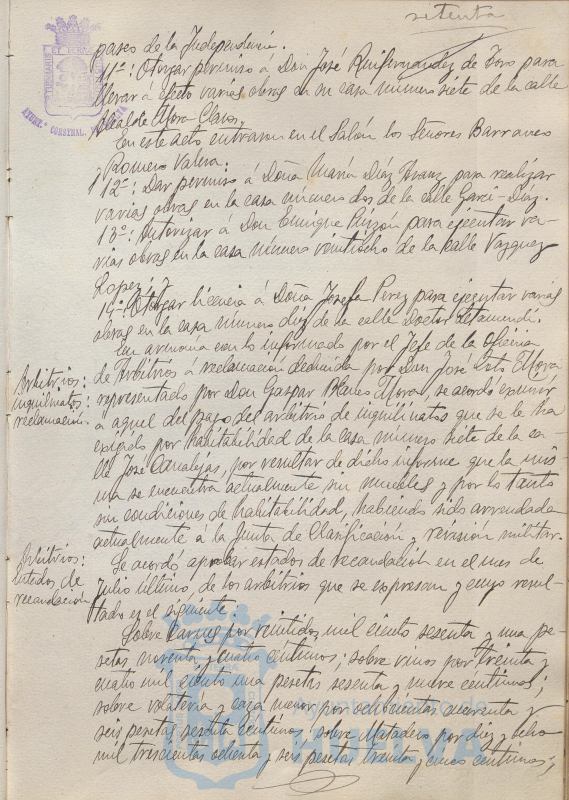 setenta
paseo de la Independencia.
11º: Otorgar permiso á Don José Ruifernandez de Toro para
llevar á efecto varias obras en su casa número siete de la calle
Alcalde Mora Claros,
En este acto entraron en el Salón los Señores Barranco
y Romero Valera:
12º: Dar permiso á Doña María Díaz para realizar
varias obras en la casa número dos de la calle Garci-Díaz.
13º: Autorizar á Don Enrique Pinzón para ejecutar va-
rias obras en la casa número veintiocho de la calle Vazquez
Lopez; y
14º: Otorgar licencia á Doña Josefa Perez para ejecutar varias
obras en la casa número diez de la calle Doctor Letamendi.
Arbitrios:
inquilinatos:
reclamación.
En armonia con lo informado por el Jefe de la Oficina
de Arbitrios á reclamación deducida por Don José Mora
representado por Don Gaspar Blanes Mora, se acordó eximir
a aquel del pago del arbitrio de inquilinatos que se le ha
exigido por habitabilidad de la casa número siete de la ca-
lle José Canalejas, por resultar de dicho informe que la mis-
ma se encuentra actualmente sin muebles y por lo tanto
sin condiciones de habitabilidad, habiendo sido arrendada
actualmente á la Junta de Clasificación y revisión militar.
Arbitrios:
estados de
recaudación
Se acordó aprobar estados de recaudación en el mes de
Julio último, de los arbitrios que se expresan y cuyo resul-
tado es el siguiente.
Sobre Carnes por veintidos mil ciento sesenta y una pe-
setas noventa y cuatro céntimos; sobre vinos por treinta y
cuatro mil ciento una pesetas sesenta y nueve centimos;
sobre volateria y caza menor por ochocientas cuarenta y
seis pesetas sesenta centimos; sobre Matadero por diez y ocho
mil trescientas ochenta y seis pesetas treinta y cinco centimos;
HUELVA